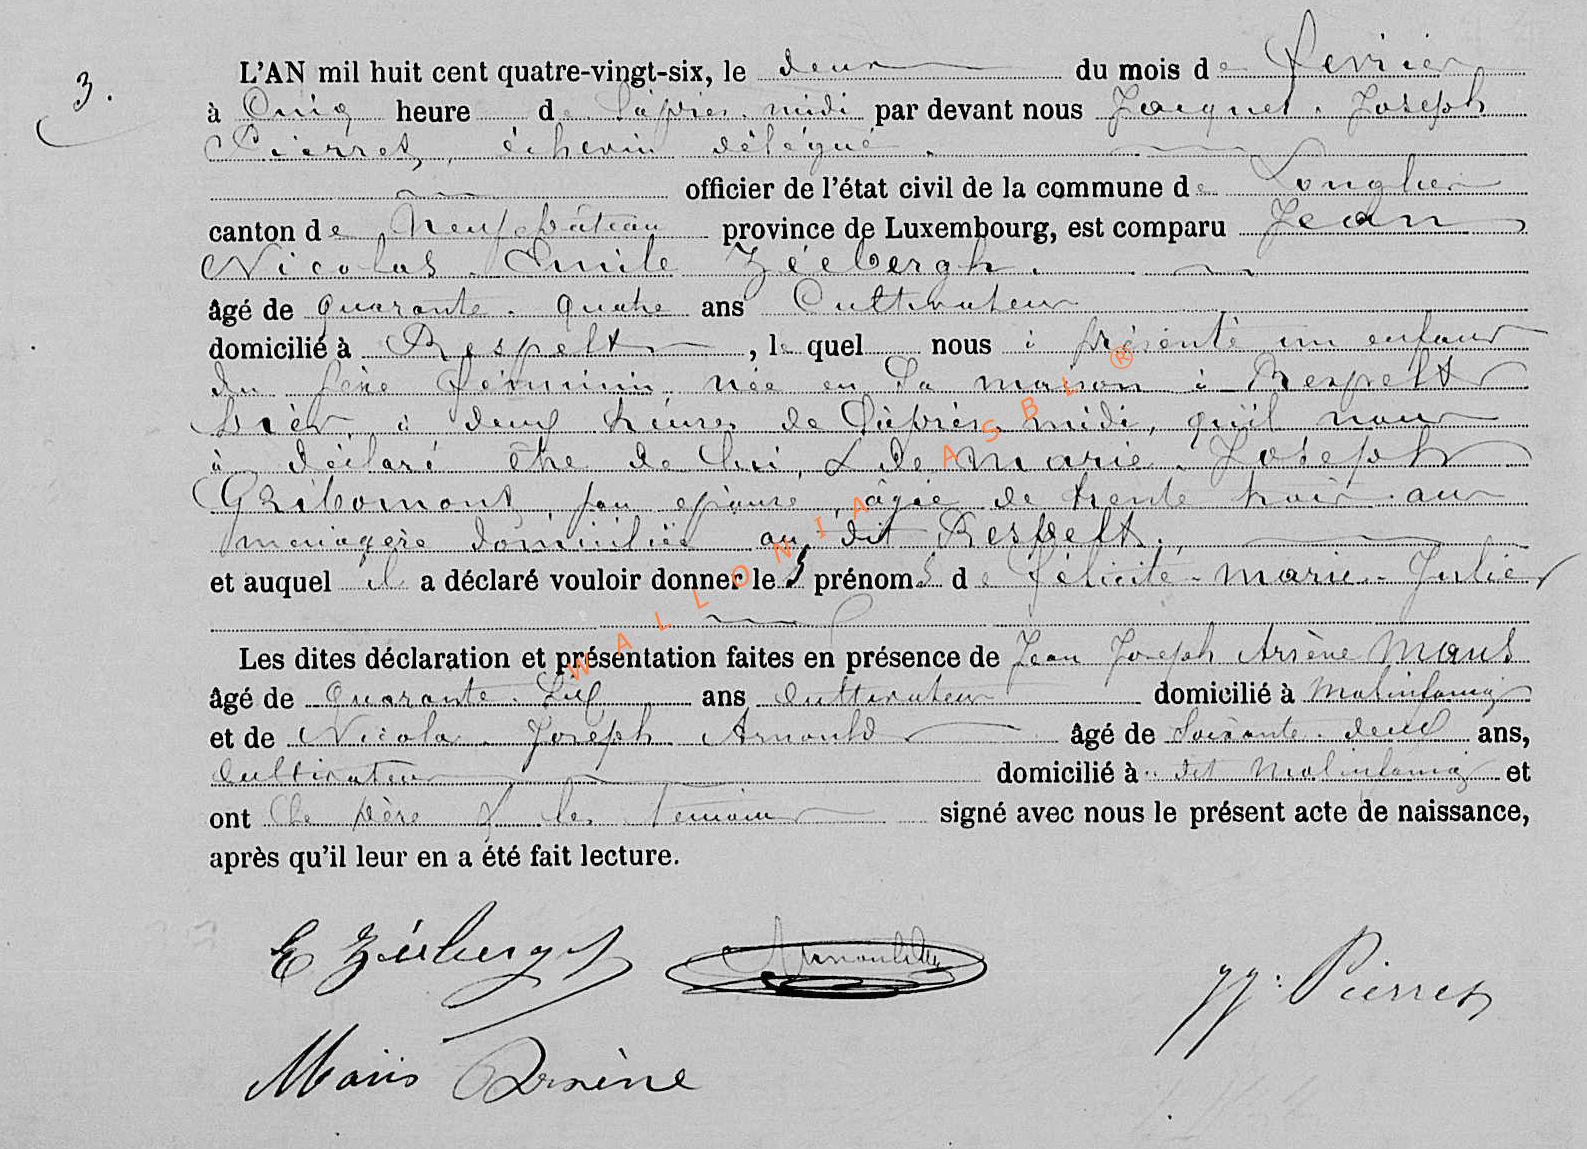 3.
L'AN mil huit cent quatre-vingt-six, le deux du mois de Fevrier
à Cinq heure de l'apres midi par devant nous Jacques Joseph
Pierret, échevin délégué
officier de l'état civil de la commune de Longlier
canton de Neufchâteau province de Luxembourg, est comparu Jean
Nicolas Emile Zéebergh.
âgé de quarante quatre ans Cultivateur
domicilié à Respelt, le quel nous à présenté un enfant
du sexe féminin, née en sa maison à Respelt
hier, à deux heures de l'après midi, qu'il nous
à déclaré être de lui, & de Marie Joseph
Gribomont, son epouse, âgée de trente trois ans
menagère domiciliée au dit Respelt.
et auquel il a déclaré vouloir donner le s prénoms de Félicité Marie Julie
Les dites déclaration et présentation faites en présence de Jean Joseph Arsène Maus
âgé de Quarante Six ans cultivateur domicilié à Molinfaing
et de Nicolas Joseph Arnould âgé de Soixante deux ans,
Cultivateur domicilié à dit Molinfaing et
ont le père & les témoins signé avec nous le présent acte de naissance,
après qu'il leur en a été fait lecture.
E Zéebergh Arnould JJ: Pierret
Maus Arsène
WALLONIA ASBL ®